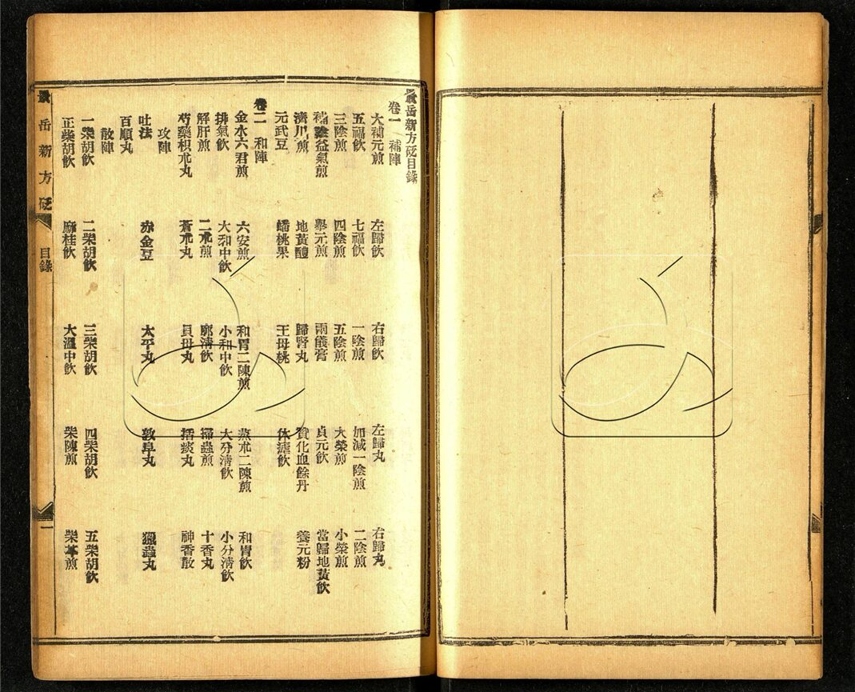 景岳新方砭目錄
卷一 補陣
大補元煎 左歸飲 右歸飲 左歸丸 右歸丸
五福飲 七福飲 一陰煎 加減一陰煎 二陰煎
三陰煎 四陰煎 五陰煎 大榮煎 小榮煎
補陰益氣煎 舉元煎 兩儀膏 貞元飲 當歸地黃飲
濟川煎 地黃醴 歸腎丸 贊化血餘丹 養元粉
元武豆 蟠桃果 王母桃 休瘧飲
卷二 和陣
金水六君煎 六安煎 和胃二陳煎 苓朮二陳煎 和胃飲
排氣飲 大和中飲 小和中飲 大分清飲 小分清飲
解肝煎 二朮煎 廓清飲 掃蟲煎 十香丸
芍藥枳朮丸 蒼朮丸 貝母丸 括痰丸 神香散
攻陣
吐法 赤金豆 太平丸 敦阜丸 獵蟲丸
百順丸
散陣
一柴胡飲 二柴胡飲 三柴胡飲 四柴胡飲 五柴胡飲
正柴胡飲 麻桂飲 大溫中飲 柴陳煎 柴芩煎
景岳新方砭 目錄 一